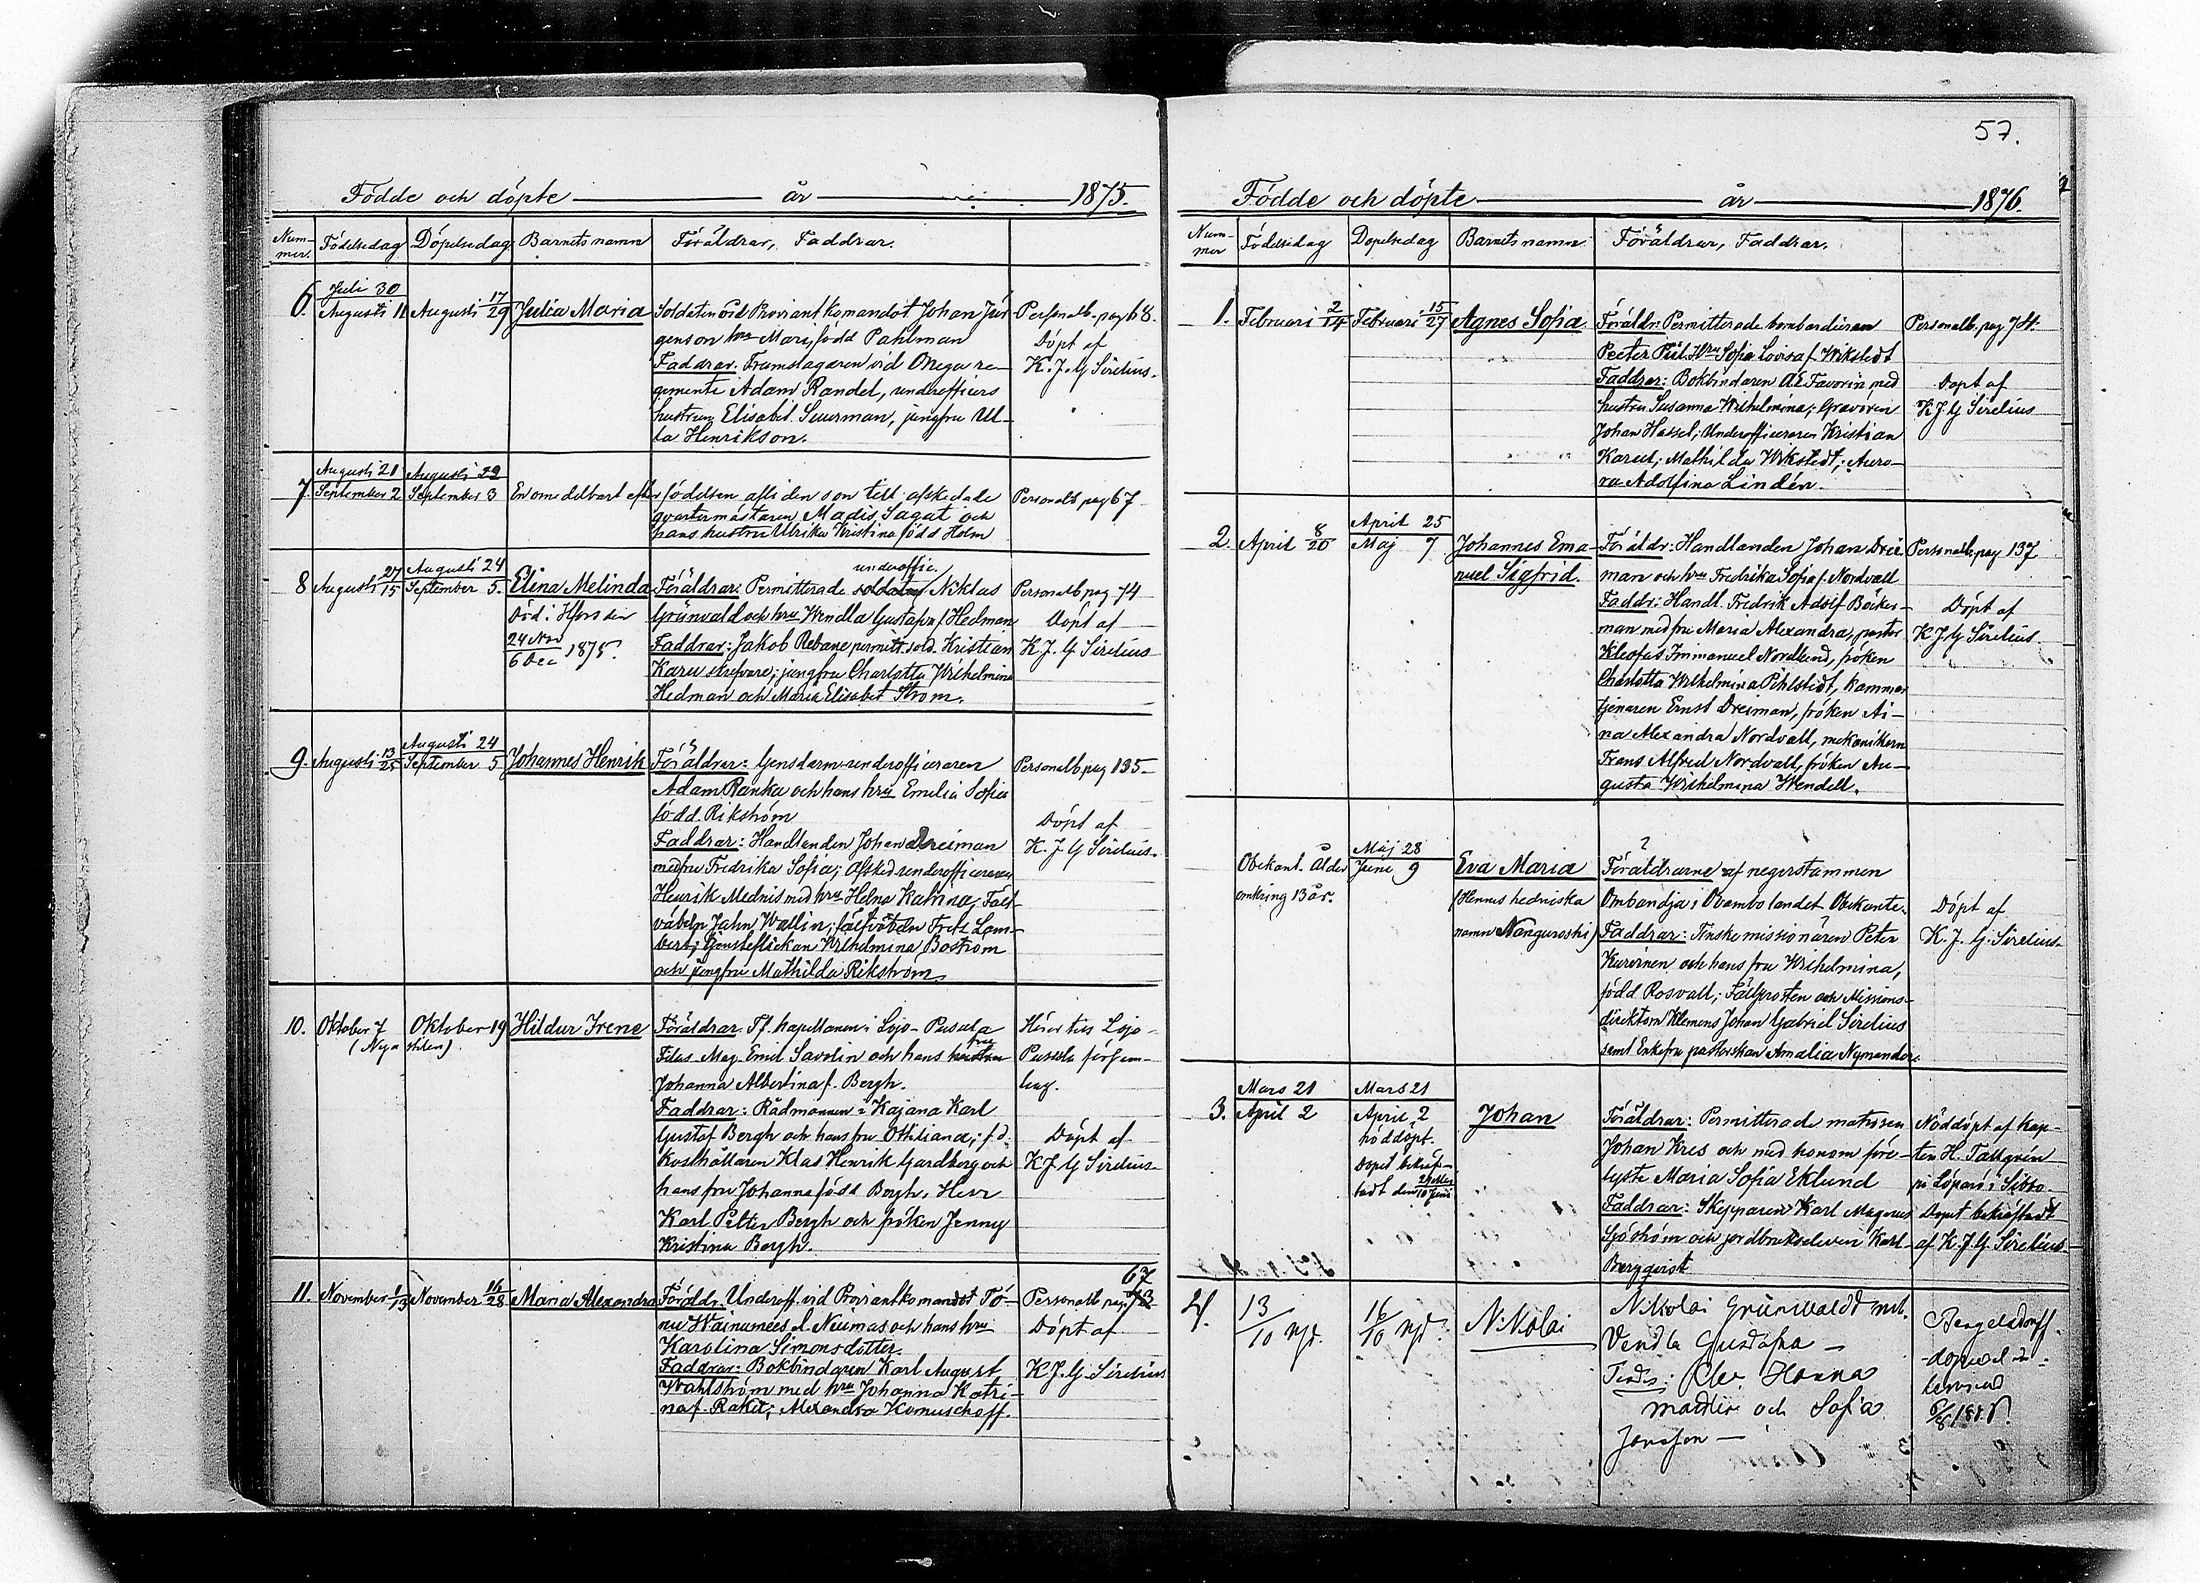 Födde och döpte år 1875.
Nummer. Födelsedag Döpelsedag Barnets namn Föräldrar, Faddrar.
6. Juli 30 Augusti 11 Augusti 17/29 Julia Maria Soldaten vid Proviantkomandot Johan Jür- Personalb. pag 68.
genson hru Mari, född Pahlman Döpt af
Faddrar. Trumslagaren vid Onega re- K. J. G Sirelius.
gemente Adam Randel, underofficers
hustrun Elisabet Suurman, jungfru Ul-
la Henrikson.
7. Augusti 21 September 2 Augusti 22 September 3 En omedelbart efter födelsen afliden son till afskedade Personalb. pag 67
qvartermästaren Madis Sagat och
hans hustru Ulrika Kristina född Holm
underoffic.
8 Augusti 27/15 Augusti 24 September 5. Elina Melinda Föräldrar. Permitterade soldaten Niklas Personalb pag 74
Död i Hfors den Grünvald och hru Wendla Gustafva f. Hedman Döpt af
24 Nov 6 Dec 1875. Faddrar: Jakob Rebane permitt. sold. Kristian K. J. G Sirelius
Karu, jungfru Charlotta Wilhelmina
Hedman och Maria Elisabet Ström.
9. Augusti 13/25 Augusti 24 September 5 Johannes Henrik Föräldrar: Gensdarm-underofficeraren Personalb pag 135
Adam Ranka och hans hru Emelia Sofia
född Rikström Döpt af
Faddrar: Handlanden Johan Dreiman K. J. G Sirelius.
med fru Fredrika Sofia; Afsked. underofficeraren
Henrik Mednis med hru Helna Katrina; Fält-
väbeln Jahn Wallin; fältväbeln Fritz Lam-
bert; tjensteflickan Wilhelmina Boström
och jungfru Mathilda Rikström.
10. Oktober 7 Oktober 19 Hildur Irene Föräldrar. Tf. kapellanen i Lojo-Pusula Hör till Lojo-
(Nya stilen) Filos. Mag. Emil Savolin och hans hustru fru Pusula försam-
Johanna Albertina f. Bergh. ling.
Faddrar: Rådmannen i Kajana Karl
Gustaf Bergh och hans fru Othiliana; f.d. Döpt af
Kosthållaren Klas Henrik Gardberg och K J G Sirelius
hans fru Johanna född Bergh, Herr
Karl Petter Bergh och fröken Jenny
Kristina Bergh.
67
11. November 1/13 November 16/28 Maria Alexandra Föräldr. Underoff. vid Proviantkomandot Tö- Personalb pag
nu Wainumees l. Neumas och hans hru Döpt af
Karolina Simonsdotter. K. J. G Sirelius
Faddrar: Bokbindaren Karl August
Wahlström med hru Johanna Katri-
na f. Raket; Alexandra Komuschoff.
57.
Födde och döpte år 1876.
Nummer Födelsedag Döpelsedag Barnets namn Föräldrar, Faddrar.
1. Februari 2/14 Februari 15/27 Agnes Sofia. Föräldr: Permitterade bombardieren Personalb. pag 74.
Peeter Piil. Hru Sofia Lovisa f. Wikstedt
Faddrar: Bokbindaren Favorin med Döpt af
hustru Susanna Wilhelmina; Gravören K J. G Sirelius
Johan Hassel; Underofficeraren Kristian
Karut; Mathilda Wikstedt; Auro-
ra Adolfina Lindén.
2. April 8/20 April 25 Maj 7 Johannes Ema- Föräldr: Handlanden Johan Drei- Personalb. pag 137
nuel Sigfrid. man och hru Fredrika Sofia f. Nordvall
Faddr: Handl. Fredrik Adolf Böcker- Döpt af
man med fru Maria Alexandra, pastor K J. G Sirelius.
Kleofas Immanuel Nordlund, fröken
Charlotta Wilhelmina Pihlstedt, kammar
tjenaren Ernst Dreiman, fröken Ai-
na Alexandra Nordvall, mekanikern
Frans Alfred Nordvall, fröken Au-
gusta Wilhelmina Wendell.
Obekant. ålder Maj 28 Juni 9 Eva Maria Föräldrarne af negerstammen
omkring 13 år. (Hennes hedniska Ombandja i Ovambolandet Obekante. Döpt af
namn Nanguroshi) Faddrar: Finske missionären Peter K. J. G. Sirelius
Kurvinen och hans fru Wilhelmina,
född Rosvall; Fältprosten och Missions-
direktorn Klemens Johan Gabriel Sirelius
samt Enkefru pastorskan Amalia Nymander.
3. Mars 21 April 2 Mars 21 April 2 Johan Föräldrar: Permitterade matrosen Nöddöpt af Kap-
nöddöpt. Johan Kres och med honom före- ten H. Tallgren
Dopet bekräf- lyste Maria Sofia Eklund på Löparö i Sibbo.
tadt den Faddrar: Skepparen Karl Magnus Dopet bekräftadt
Sjöström och jordbrukseleven Karl af K. J. G. Sirelius
Bergqvist
4. 13/10 16/10 Nikolai Nikolai Grünwaldt
Vendla Gustafva
Hanna
och Sofia